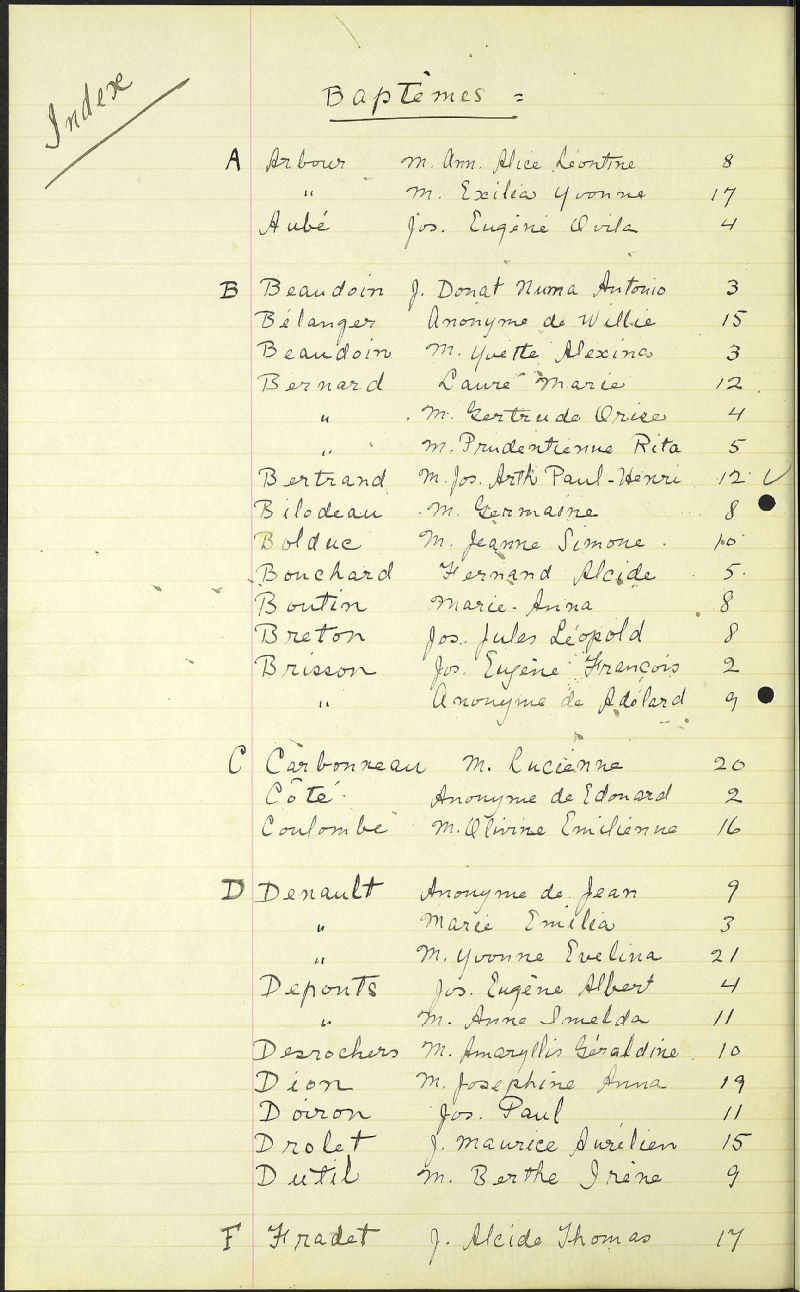 Index
Baptêmes =
A Arbour M. Ann. Alice Léontine 8
" M. Exilia Yvonne 17
Aubé Jos. Eugène Ovila 4
B Beaudoin J. Donat Numa Antonio 3
Bélanger Anonyme de Willie 15
Beaudoin M. Yvette Alexina 3
Bernard Laure Marie 12
" M. Gertrude Orise 4
" M. Prudentienne Rita 5
Bertrand M. Jos. Arth Paul-Henri 12 ✓
Bilodeau M. Germaine 8
Bolduc M. Jeanne Simone 10
Bouchard Fernand Alcide 5
Boutin Marie-Anna 8
Breton Jos. Jules Léopold 8
Brisson Jos. Eugène François 2
" Anonyme de Adélard 9
C Carbonneau M. Lucienne 20
Côté Anonyme de Edouard 2
Coulombe M. Olivine Emilienne 16
D Denault Anonyme de Jean 9
" Marie Emilia 3
" M. Yvonne Evelina 21
Deponts Jos. Eugène Albert 4
" M. Anne Imelda 11
Desrochers M. Amaryllis Géraldine 10
Dion M. Josephine Anna 19
Doiron Jos. Paul 11
Drolet J. Maurice Aurélien 15
Dutil M. Berthe Irène 9
F Fradet J. Alcide Thomas 17